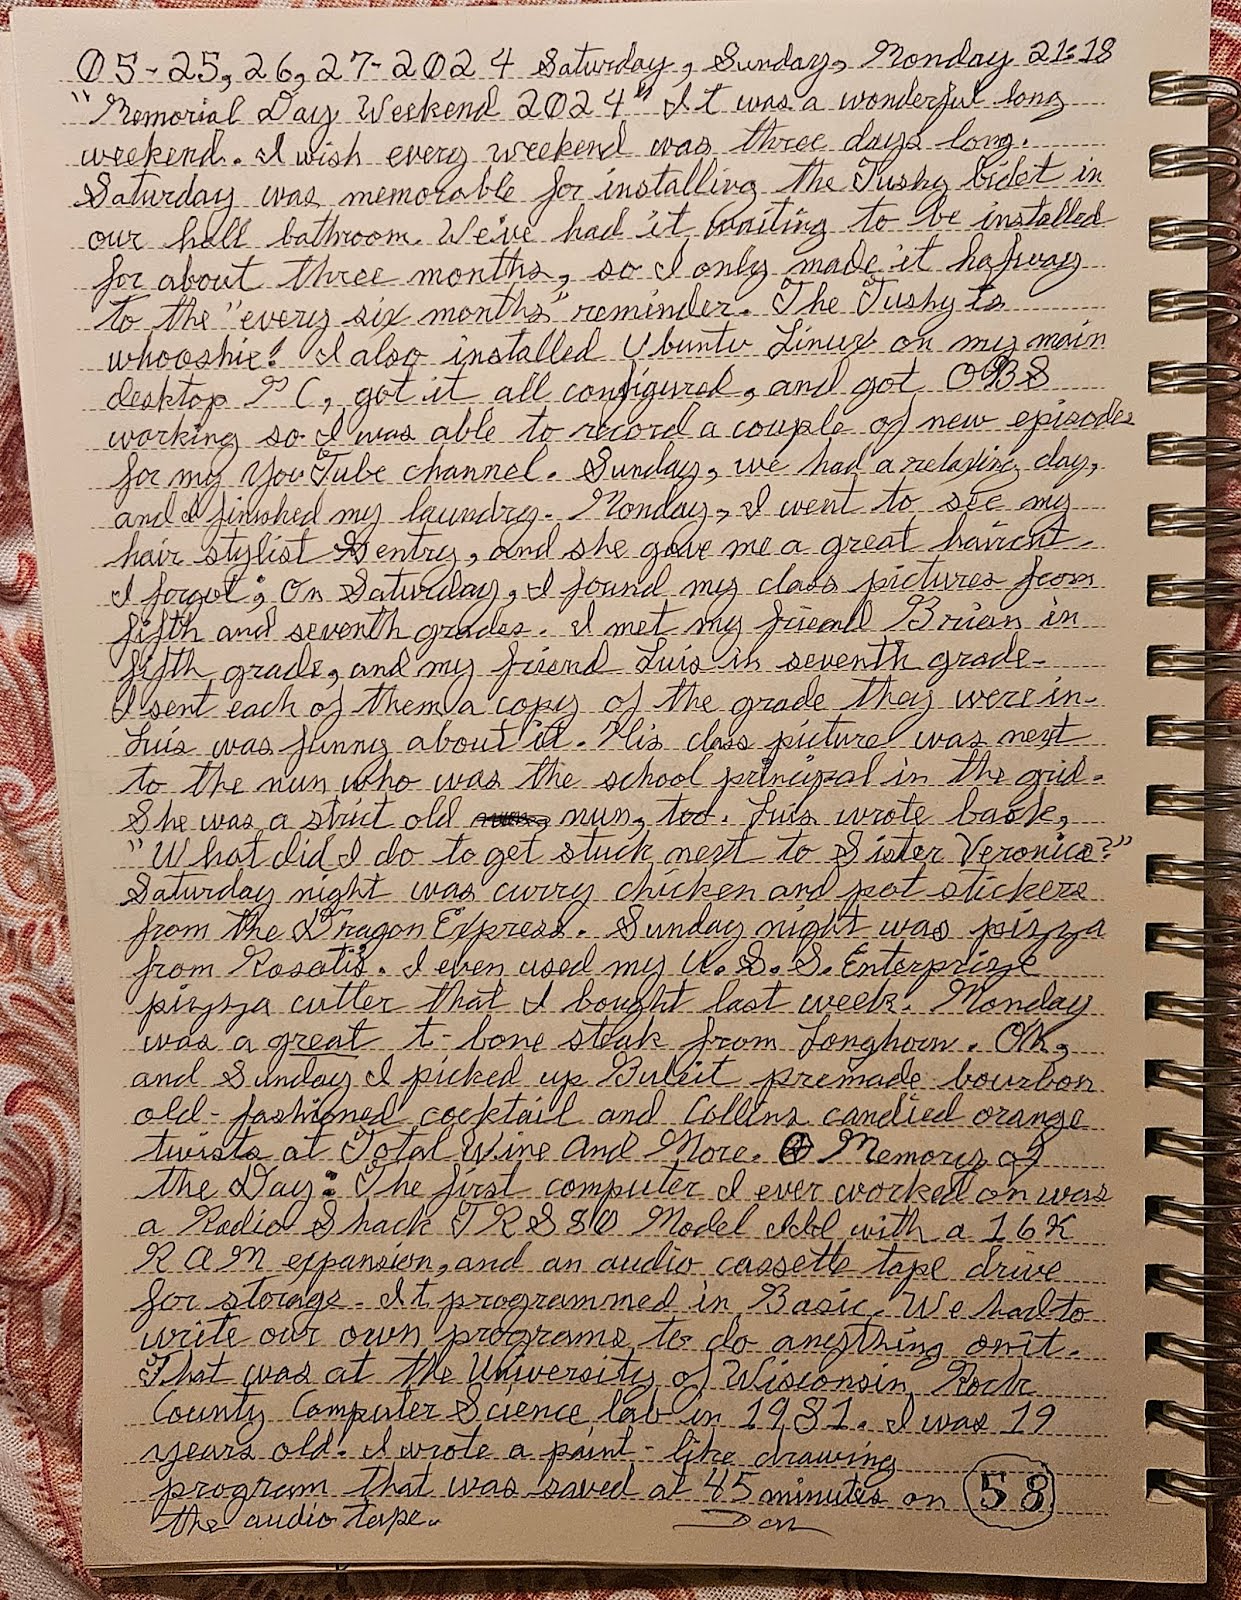 05-25,26,27-2024 Saturday, Sunday, Monday 21:18
"Memorial Day Weekend 2024" It was a wonderful long
weekend. I wish every weekend was three days long.
Saturday was memorable for installing the Tushy bidet in
our hall bathroom. We've had it waiting to be installed
for about three months, so I only made it hafway
to the "every six months" reminder. The Tushy is
whooshie! I also installed Ubuntu Linux on my main
desktop PC, got it all configured, and got OBS
working so I was able to record a couple of new episodes
for my YouTube channel. Sunday, we had a relaxing day,
and I finished my laundry. Monday, I went to see my
hair stylist Gentry, and she gave me a great haircut.
I forgot; On Saturday, I found my class pictures from
fifth and seventh grades. I met my friend Brian in
fifth grade, and my friend Luis in seventh grade.
I sent each of them a copy of the grade they were in.
Luis was funny about it. His class picture was next
to the nun who was the school principal in the grid.
She was a strict old nun, too. Luis wrote back,
"What did I do to get stuck next to Sister Veronica?"
Saturday night was curry chicken and pot stickers
from the Dragon Express. Sunday night was pizza
from Rosatis. I even used my U.S.S. Enterprize
pizza cutter that I bought last week. Monday
was a great t-bone steak from Longhorn. OK,
and Sunday I picked up Buleit premade bourbon
old-fashioned cocktail and Collins candied orange
twists at Total Wine And More. Memory of
the Day: The first computer I ever worked on was
a Radio Shack TRS80 Model III with a 16K
RAM expansion, and an audio cassette tape drive
for storage. It programmed in Basic. We had to
write our own programs to do anything on it.
That was at the University of Wisconsin Rock
County Computer Science lab in 1981. I was 19
years old. I wrote a paint-like drawing
program that was saved at 45 minutes on 58
the audio tape. Dan